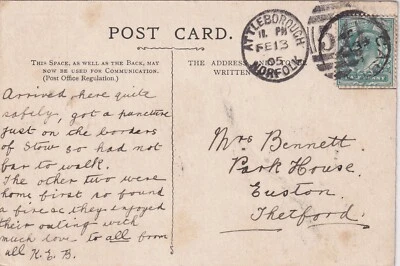 POST CARD.
THIS SPACE, AS WELL AS THE BACK, MAY
NOW BE USED FOR COMMUNICATION.
(Post Office Regulation.)
THE ADDRESS
WRITTEN
ATTLEBOROUGH
PM
FE 13
05
NORFOLK
Arrived here quite
safely, got a puncture
just on the borders
of Stow so had not
far to walk.
The other two were
home first so found
a fire &c they enjoyed
their outing with
much love to all from
all K.E.B.
Mrs Bennett
Park House
Euston
Thetford